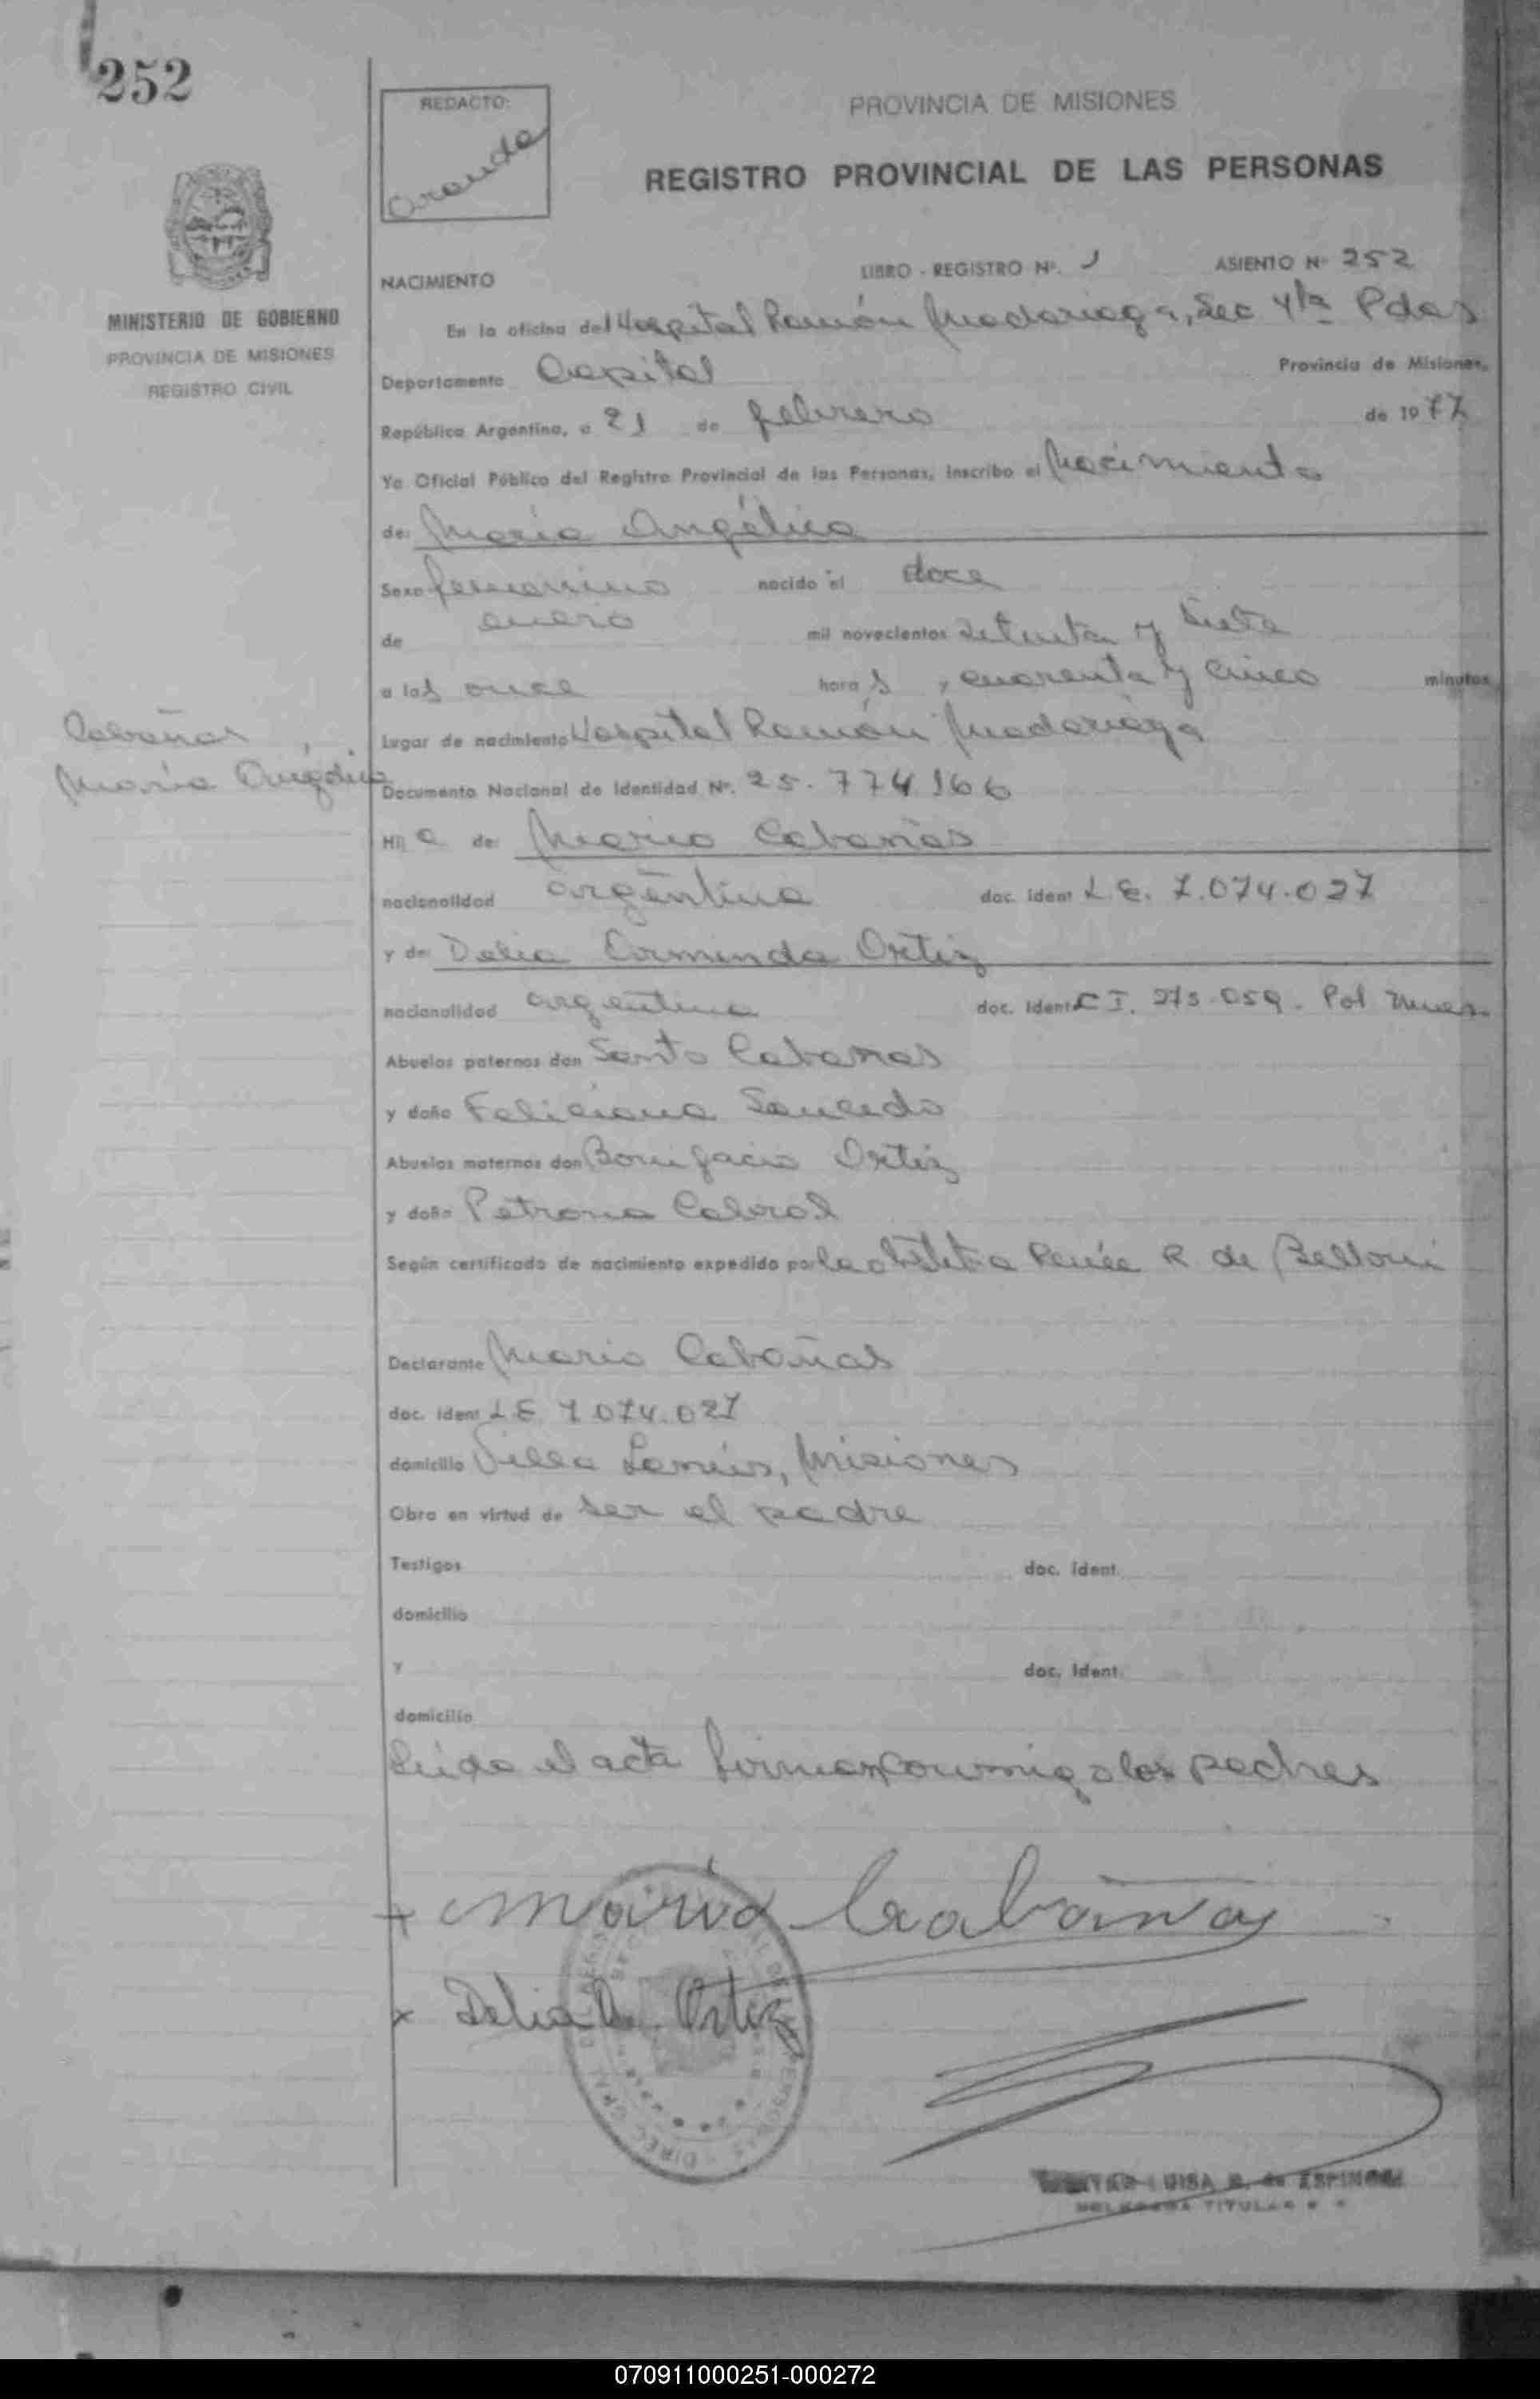 252
REDACTO:
Aranda
PROVINCIA DE MISIONES
REGISTRO PROVINCIAL DE LAS PERSONAS
MINISTERIO DE GOBIERNO
PROVINCIA DE MISIONES
REGISTRO CIVIL
NACIMIENTO
LIBRO - REGISTRO Nº. 1 ASIENTO Nº 252
En la oficina del Hospital Ramón Madariaga, Sec 4ta Pdas
Departamento Capital Provincia de Misiones,
República Argentina, a 21 de febrero de 1977
Yo Oficial Público del Registro Provincial de las Personas, inscribo el Nacimiento
de: María Angélica
Sexo femenino nacido el doce
de enero mil novecientos setenta y siete
a las once horas, cuarenta y cinco minutos
Cabañas,
María Angélica
Lugar de nacimiento Hospital Ramón Madariaga
Documento Nacional de Identidad Nº. 25.774166
Hija de: Mario Cabañas
nacionalidad argentina doc. ident L.E. 7.074.027
y de: Delia Orminda Ortiz
nacionalidad argentina doc. ident C I. 273.059. Pol Mnes.
Abuelos paternos don Santo Cabañas
y doña Feliciana Saucedo
Abuelos maternos don Bonifacio Ortiz
y doña Petrona Cabral
Según certificado de nacimiento expedido por la obstetra Renée R. de Belloni
Declarante Mario Cabañas
doc. ident L E 7.074.027
domicilio Villa Lanús, Misiones
Obra en virtud de ser el padre
Testigos doc. ident.
domicilio
y doc. ident.
domicilio
Leída el acta firman conmigo los padres
x Mario Cabañas
x Delia O. Ortiz
LUISA R. de ESPINOSA
TITULAR
070911000251-000272